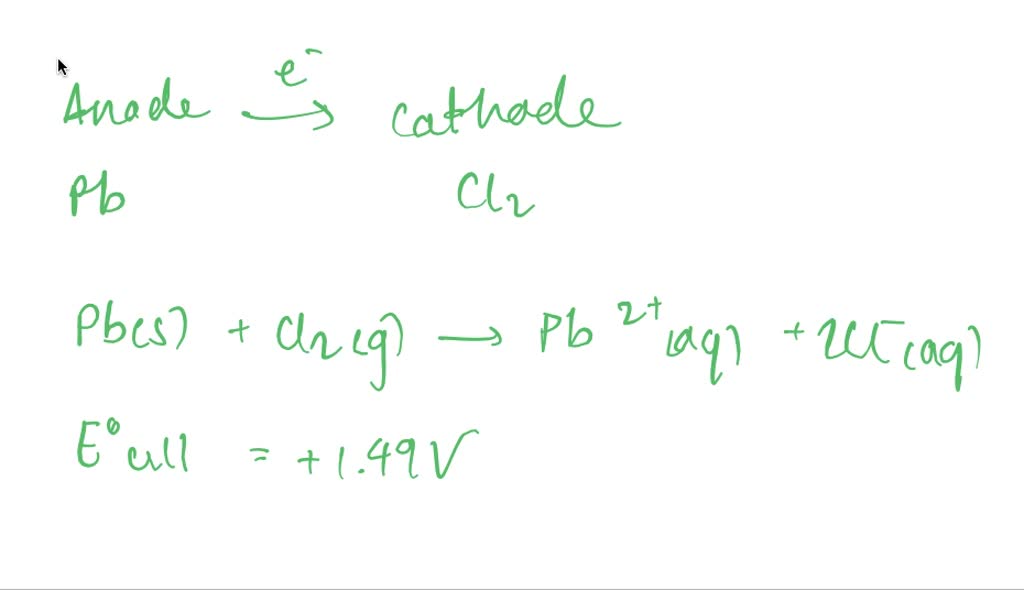 Anode e⁻ → cathode
Pb Cl₂
Pb(s) + Cl₂(g) → Pb²⁺(aq) + 2Cl⁻(aq)
E° cell = +1.49V